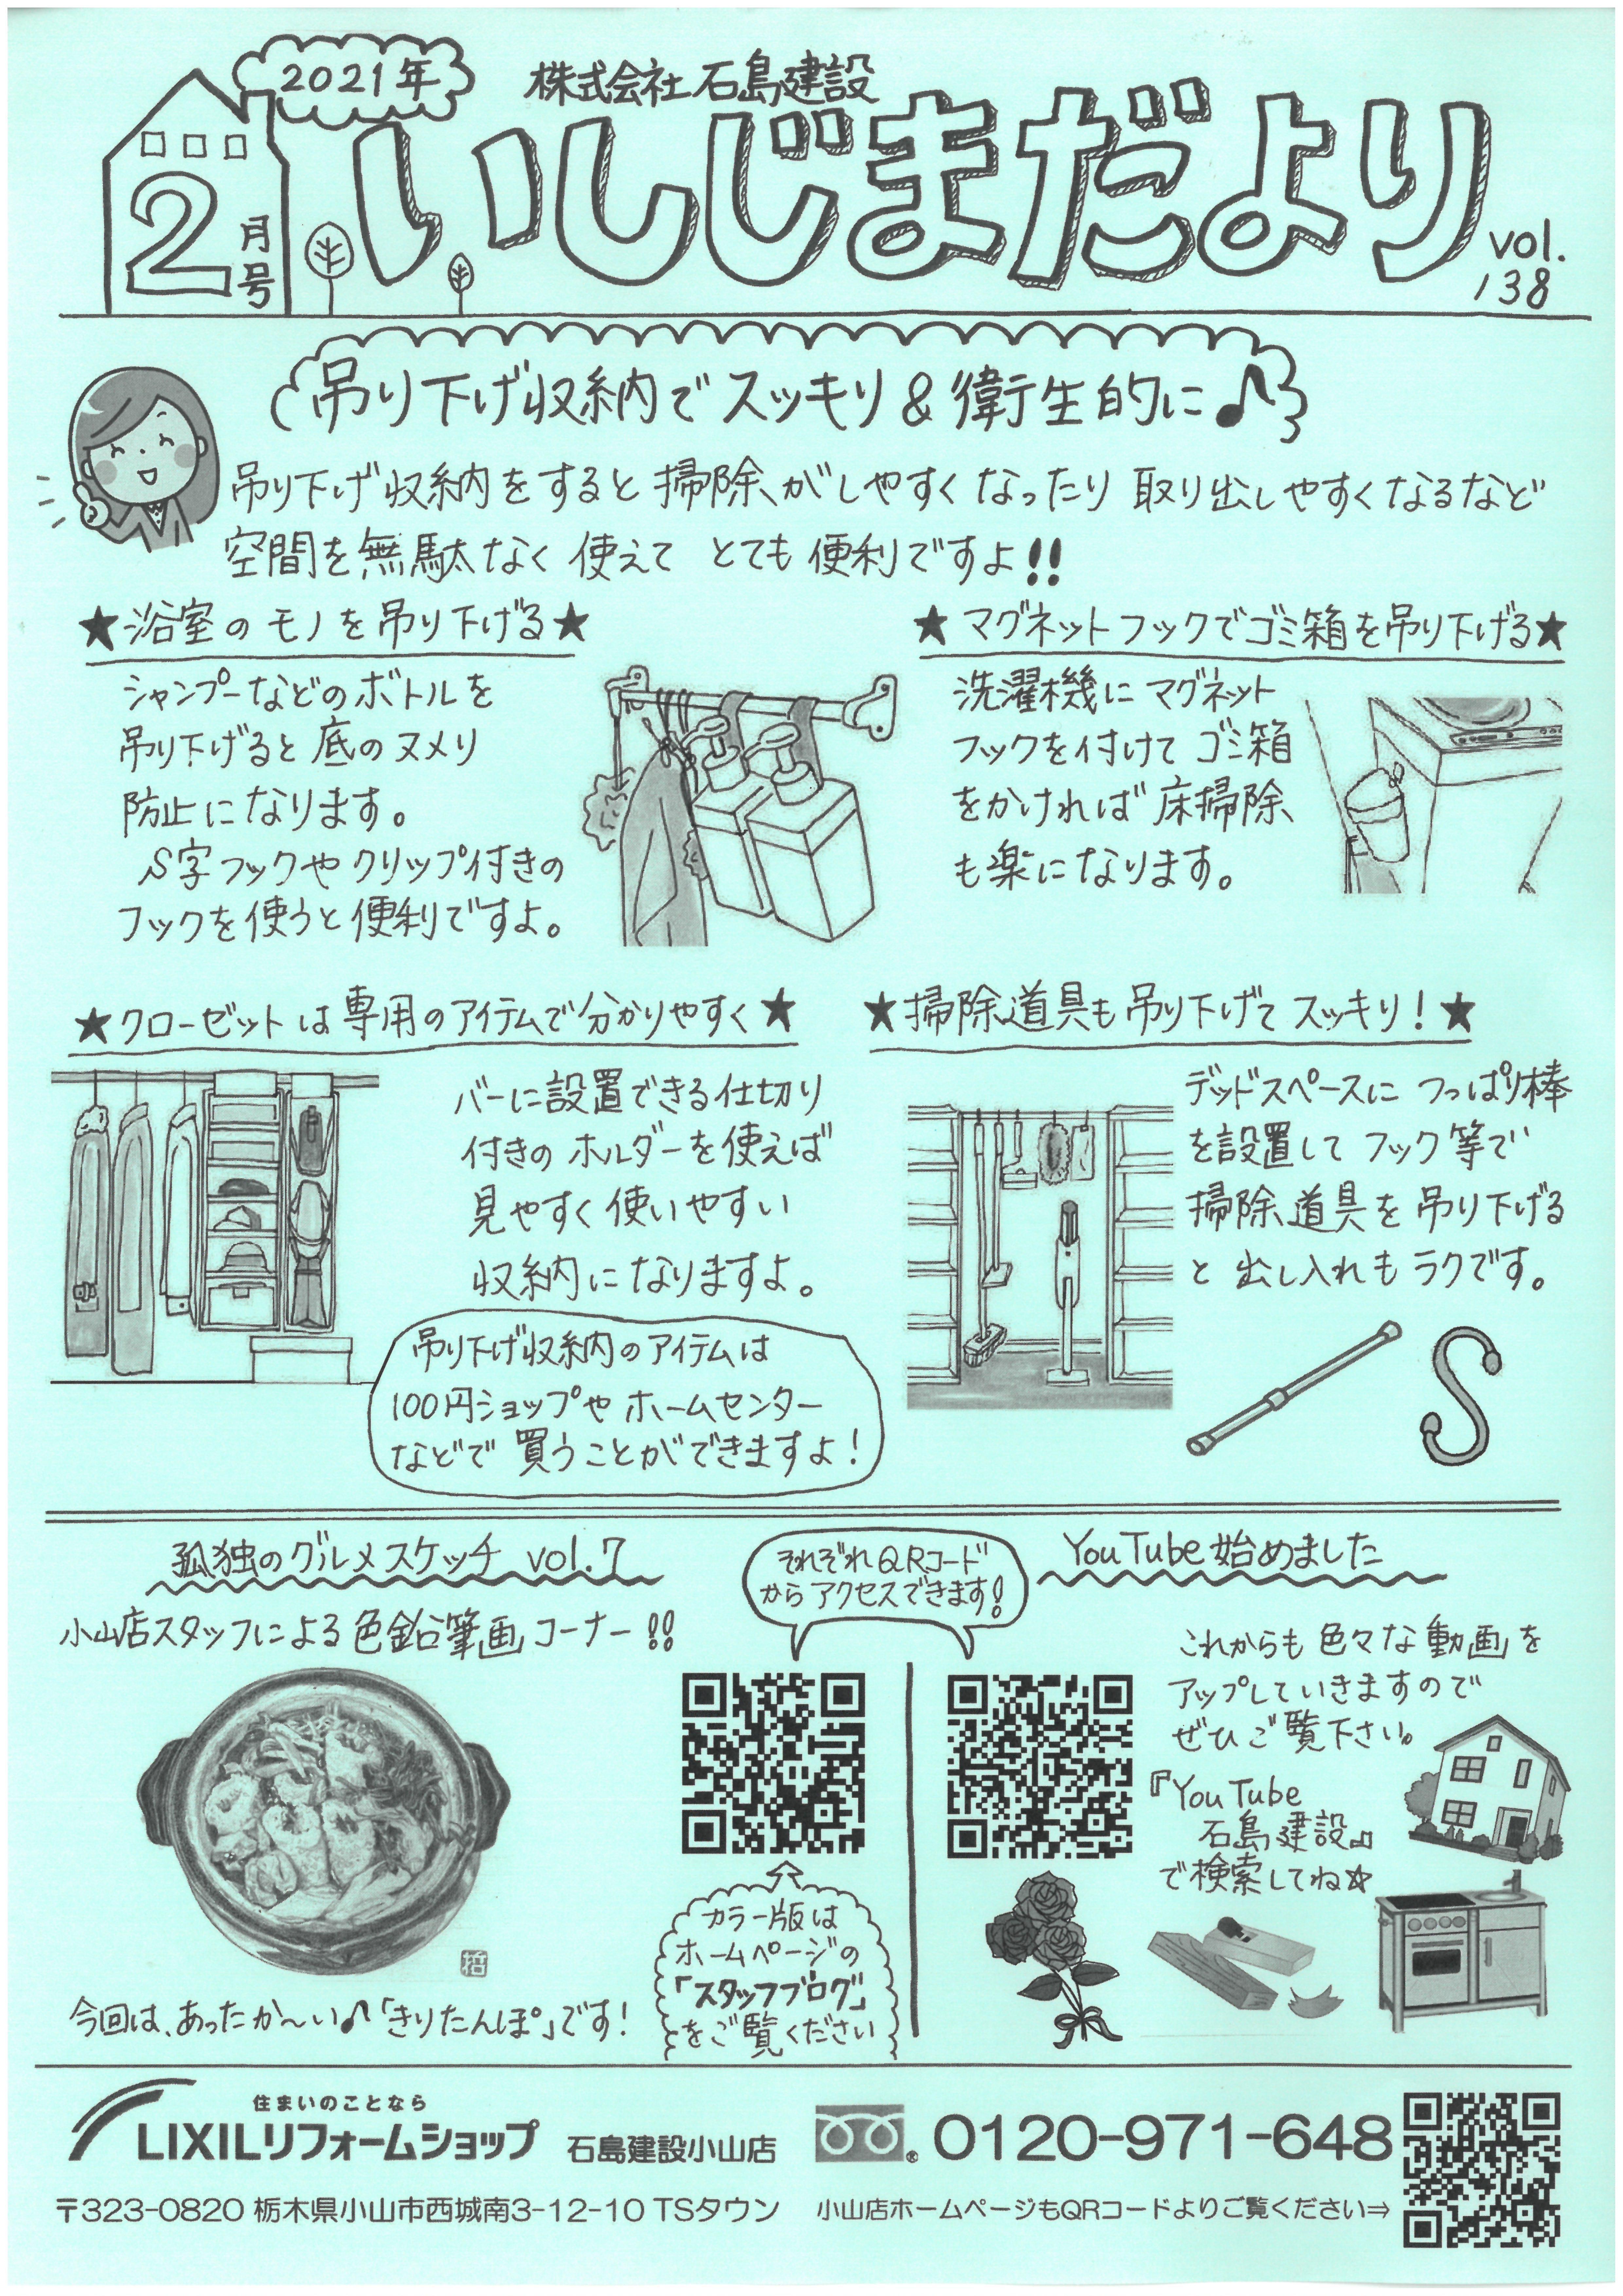 2021年
株式会社 石島建設
2月号
いしじまだより
vol.
138
吊り下げ収納でスッキリ&衛生的に♪
吊り下げ収納をすると掃除がしやすくなったり取り出しやすくなるなど
空間を無駄なく使えてとても便利ですよ!!
★浴室のモノを吊り下げる★
シャンプーなどのボトルを
吊り下げると底のヌメリ
防止になります。
S字フックやクリップ付きの
フックを使うと便利ですよ。
★マグネットフックでゴミ箱を吊り下げる★
洗濯機にマグネット
フックを付けてゴミ箱
をかければ床掃除
も楽になります。
★クローゼットは専用のアイテムで分かりやすく★
バーに設置できる仕切り
付きのホルダーを使えば
見やすく使いやすい
収納になりますよ。
吊り下げ収納のアイテムは
100円ショップやホームセンター
などで買うことができますよ!
★掃除道具も吊り下げてスッキリ!★
デッドスペースにつっぱり棒
を設置してフック等で
掃除道具を吊り下げる
と出し入れもラクです。
孤独のグルメスケッチ vol.7
小山店スタッフによる色鉛筆画コーナー!!
哲
今回は、あったか〜い♪「きりたんぽ」です!
それぞれQRコード
からアクセスできます!
カラー版は
ホームページの
「スタッフブログ」
をご覧ください
YouTube始めました
これからも色々な動画を
アップしていきますので
ぜひご覧下さい。
『YouTube
石島建設』
で検索してね☆
住まいのことなら
LIXILリフォームショップ 石島建設小山店
0120-971-648
〒323-0820 栃木県小山市西城南3-12-10 TSタウン
小山店ホームページもQRコードよりご覧ください⇒